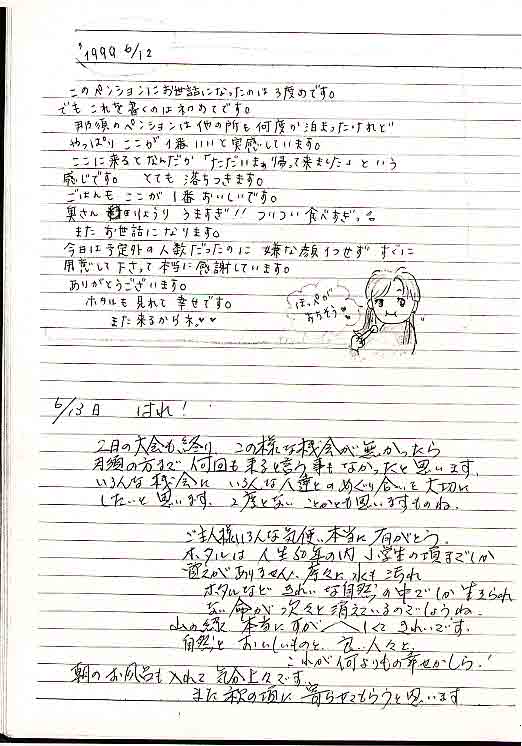 '1999 6/12
このペンションにお世話になったのは3度めです。
でもこれを書くのは初めてです。
那須のペンションは他の所も何度か泊まったけれど
やっぱりここが1番いいと実感しています。
ここに来るとなんだか「ただいまぁ帰って来ました」という
感じです。とても落ちつきます。
ごはんもここが1番おいしいです。
奥さん りょうりうますぎ!!ついつい食べすぎっ。
またお世話になります。
今日は予定外の人数だったのに嫌な顔1つせずすぐに
用意して下さって本当に感謝しています。
ありがとうございます。
ホタルも見れて幸せです。
また来るからネ。♥♥
ほっぺが
おちそう♥
6/13日 はれ!
2日の大会も終り この様な機会が無かったら
那須の方まで何回も来ると言う事もなかったと思います。
いろんな機会に いろんな人達とのめぐり合いを大切に
したいと思います。2度とないことかとも思いますものね。
ご主人様いろんな気使い本当に有がとう。
ホタルは人生50年の内 小学生の頃までしか
覚えがありません。年々に水も汚れ
ホタルなど きれいな自然の中でしか生きられ
ない命が次々と消えているのでしょうね。
山の緑 本当にすがすがしくてきれいです。
自然と おいしいものと、良い人々と、
これが何よりもの幸せかしら!
朝のお風呂も入れて気分上々です。
また秋の頃に寄らせてもらうと思います